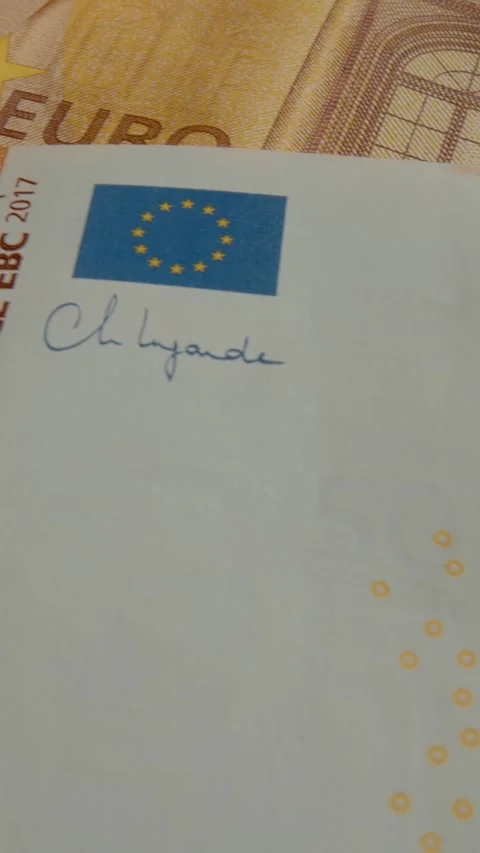 EURO
EBC 2017
Ch Lagarde
50